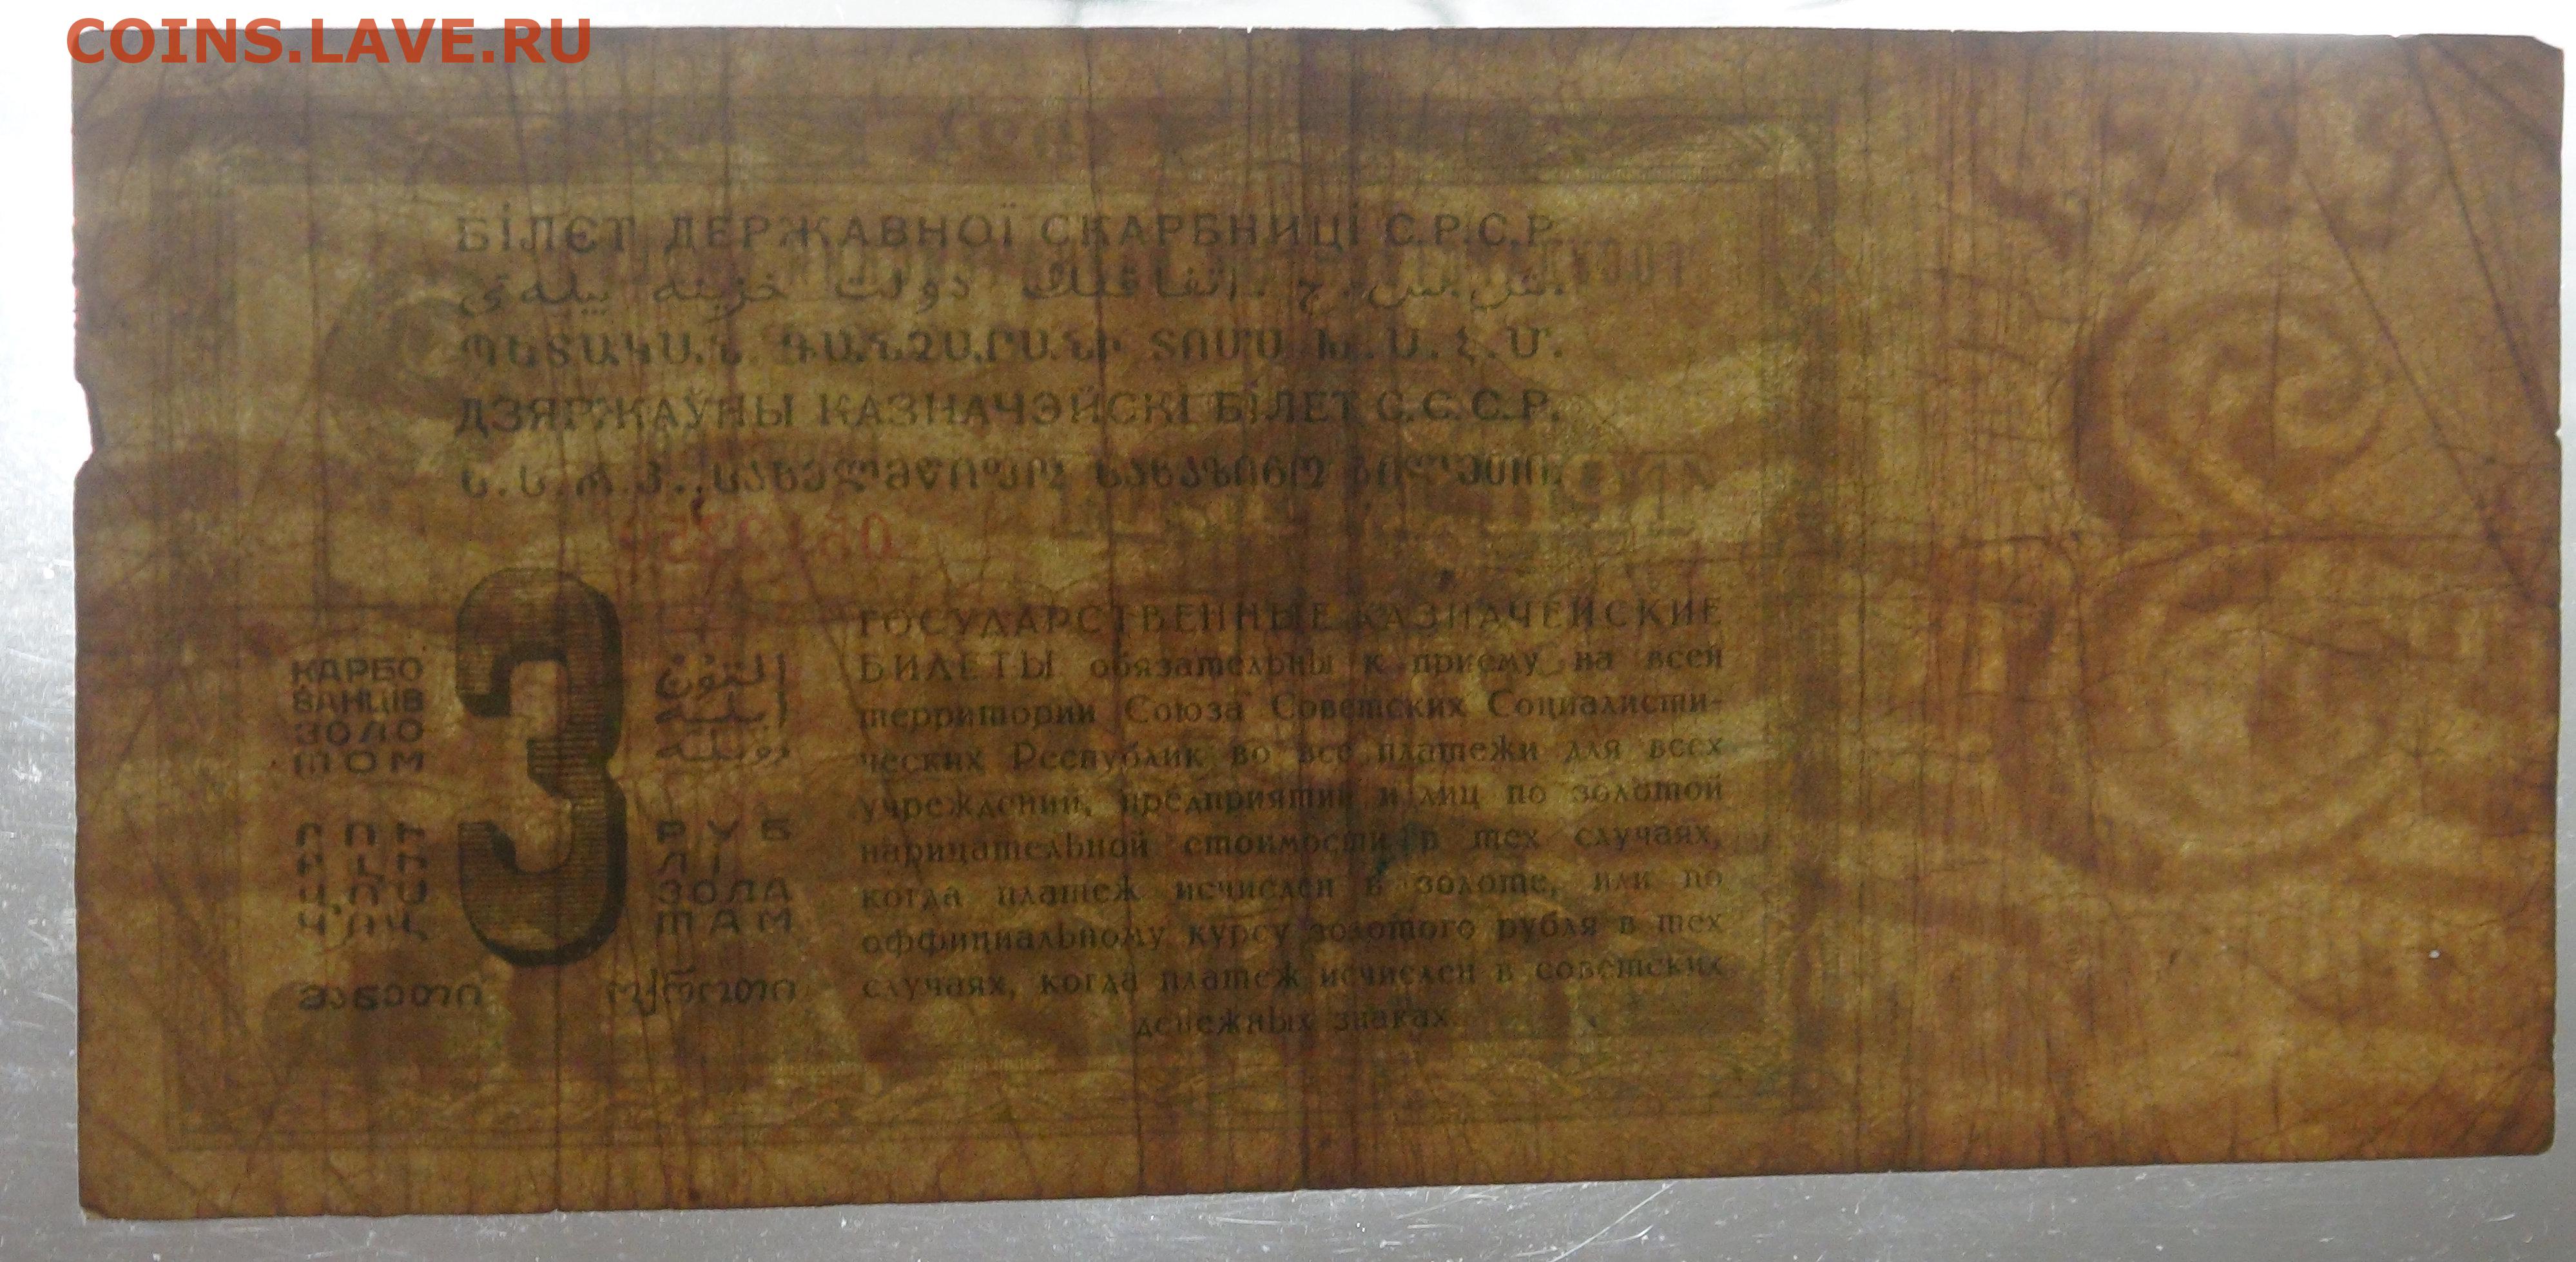 COINS.LAVE.RU
БІЛЄТ ДЕРЖАВНОЇ СКАРБНИЦІ С.Р.С.Р.
ش.س.ج. اتفاقنك دولت خزینه بیله‌ی
ՊԵՏԱԿԱՆ ԳԱՆՁԱՐԱՆԻ ՏՈՄՍ Խ.Ս.Հ.Մ.
ДЗЯРЖАЎНЫ КАЗНАЧЭЙСКІ БІЛЕТ С.С.С.Р.
ს.ს.რ.კ. სახელმწიფო სახაზინო ბილეთი.
3
КАРБО
ВАНЦІВ
ЗОЛО
ТОМ
РУБ
ЛІ
ЗОЛА
ТАМ
მანეთი ოქროთი
ГОСУДАРСТВЕННЫЕ КАЗНАЧЕЙСКИЕ
БИЛЕТЫ обязательны к приему на всей
территории Союза Советских Социалисти-
ческих Республик во все платежи для всех
учреждений, предприятий и лиц по золотой
нарицательной стоимости в тех случаях,
когда платеж исчислен в золоте, или по
оффициальному курсу золотого рубля в тех
случаях, когда платеж исчислен в советских
денежных знаках.